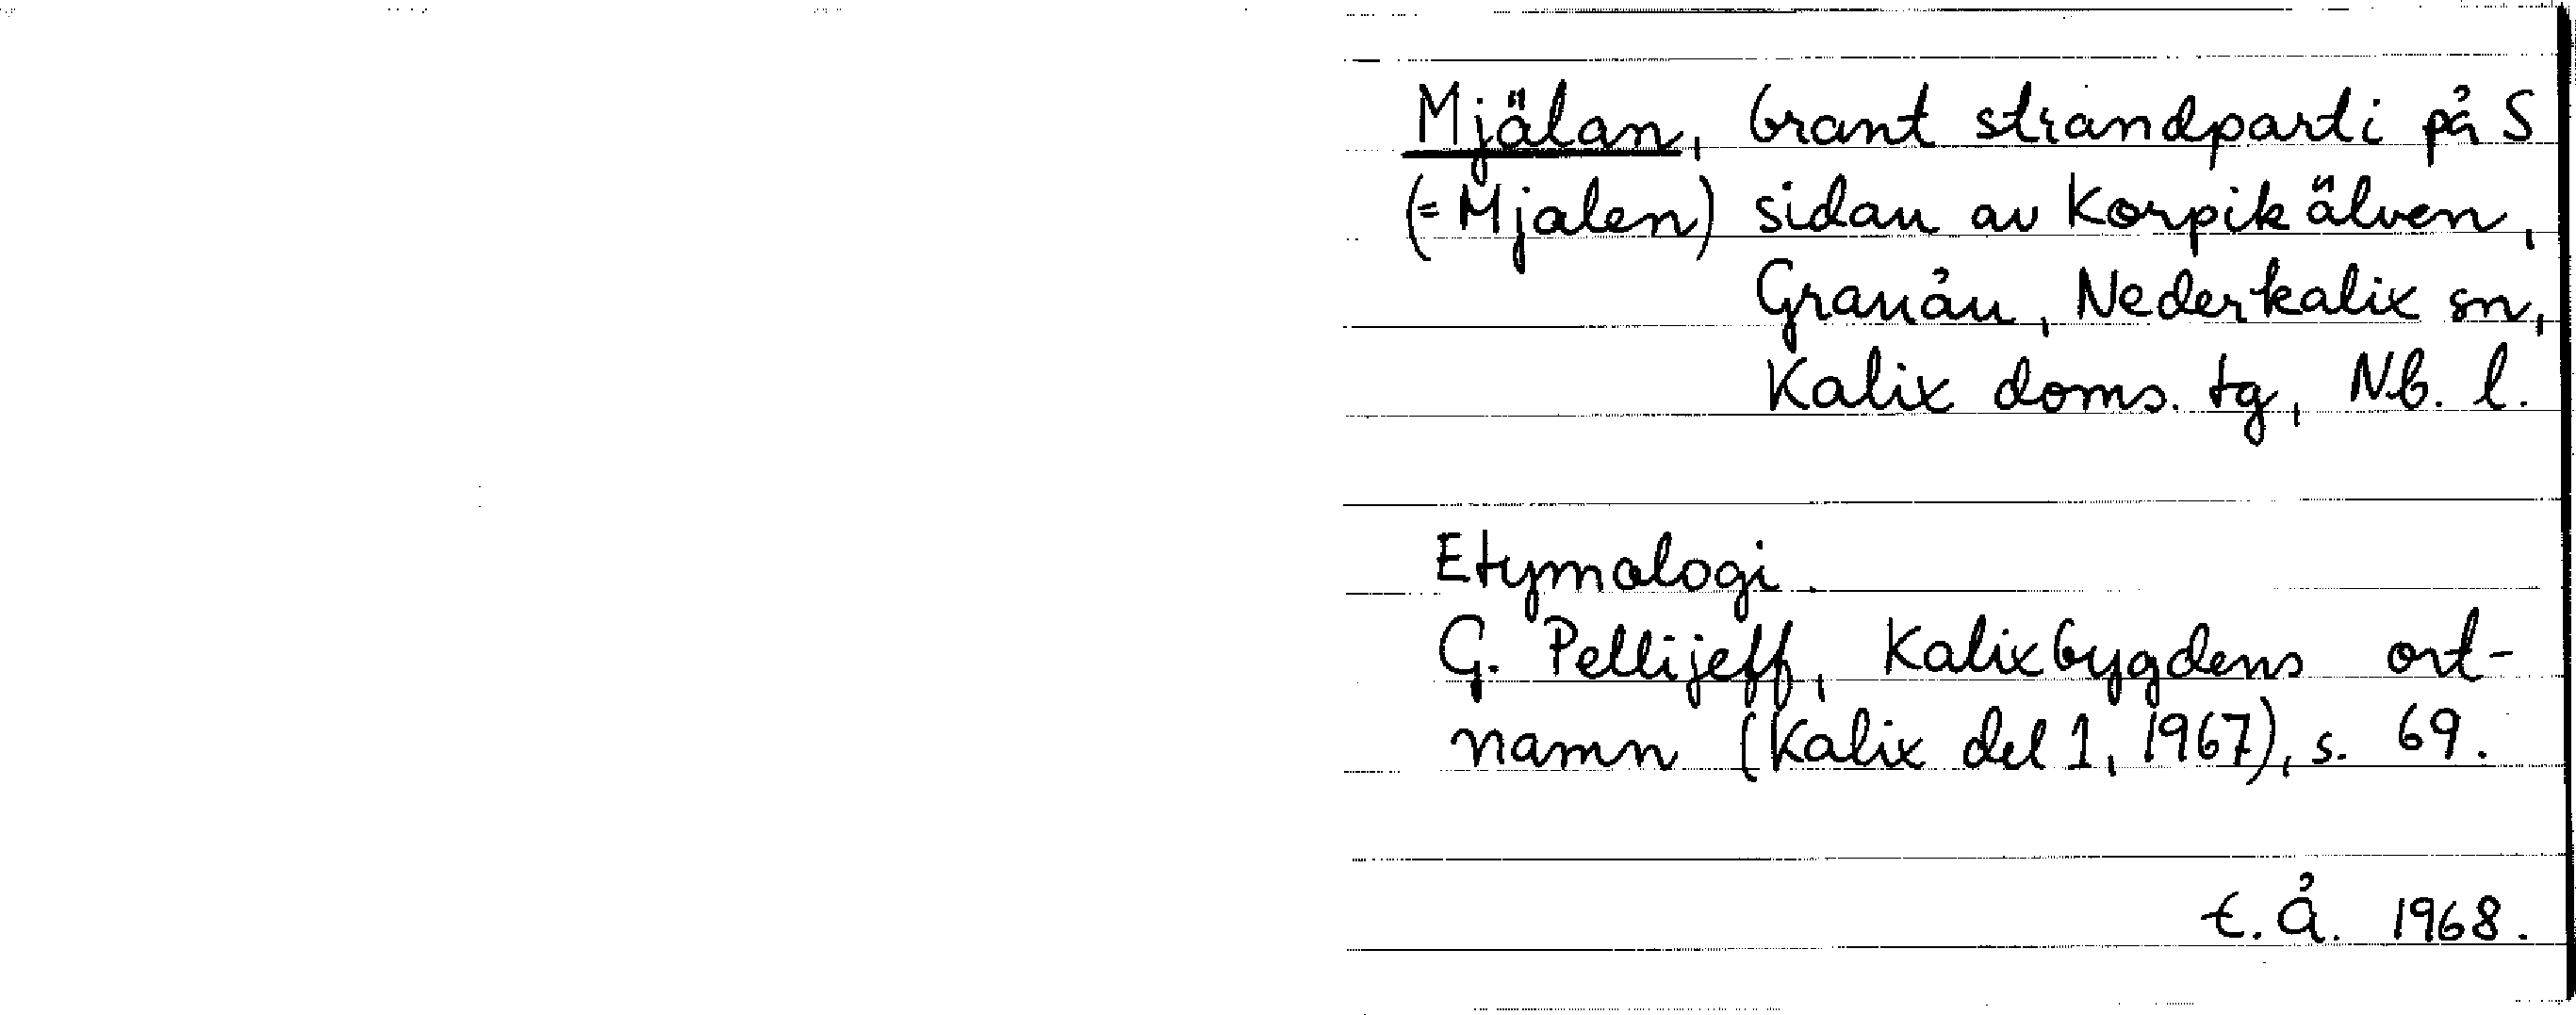 Mjälan, brant strandparti på S
(= Mjalen) sidan av Korpikälven,
Granån, Nederkalix sn,
Kalix doms. tg, Nb. l.
Etymologi.
G. Pellijeff, Kalixbygdens ort-
namn (Kalix del 1, 1967), s. 69.
E. Å. 1968.